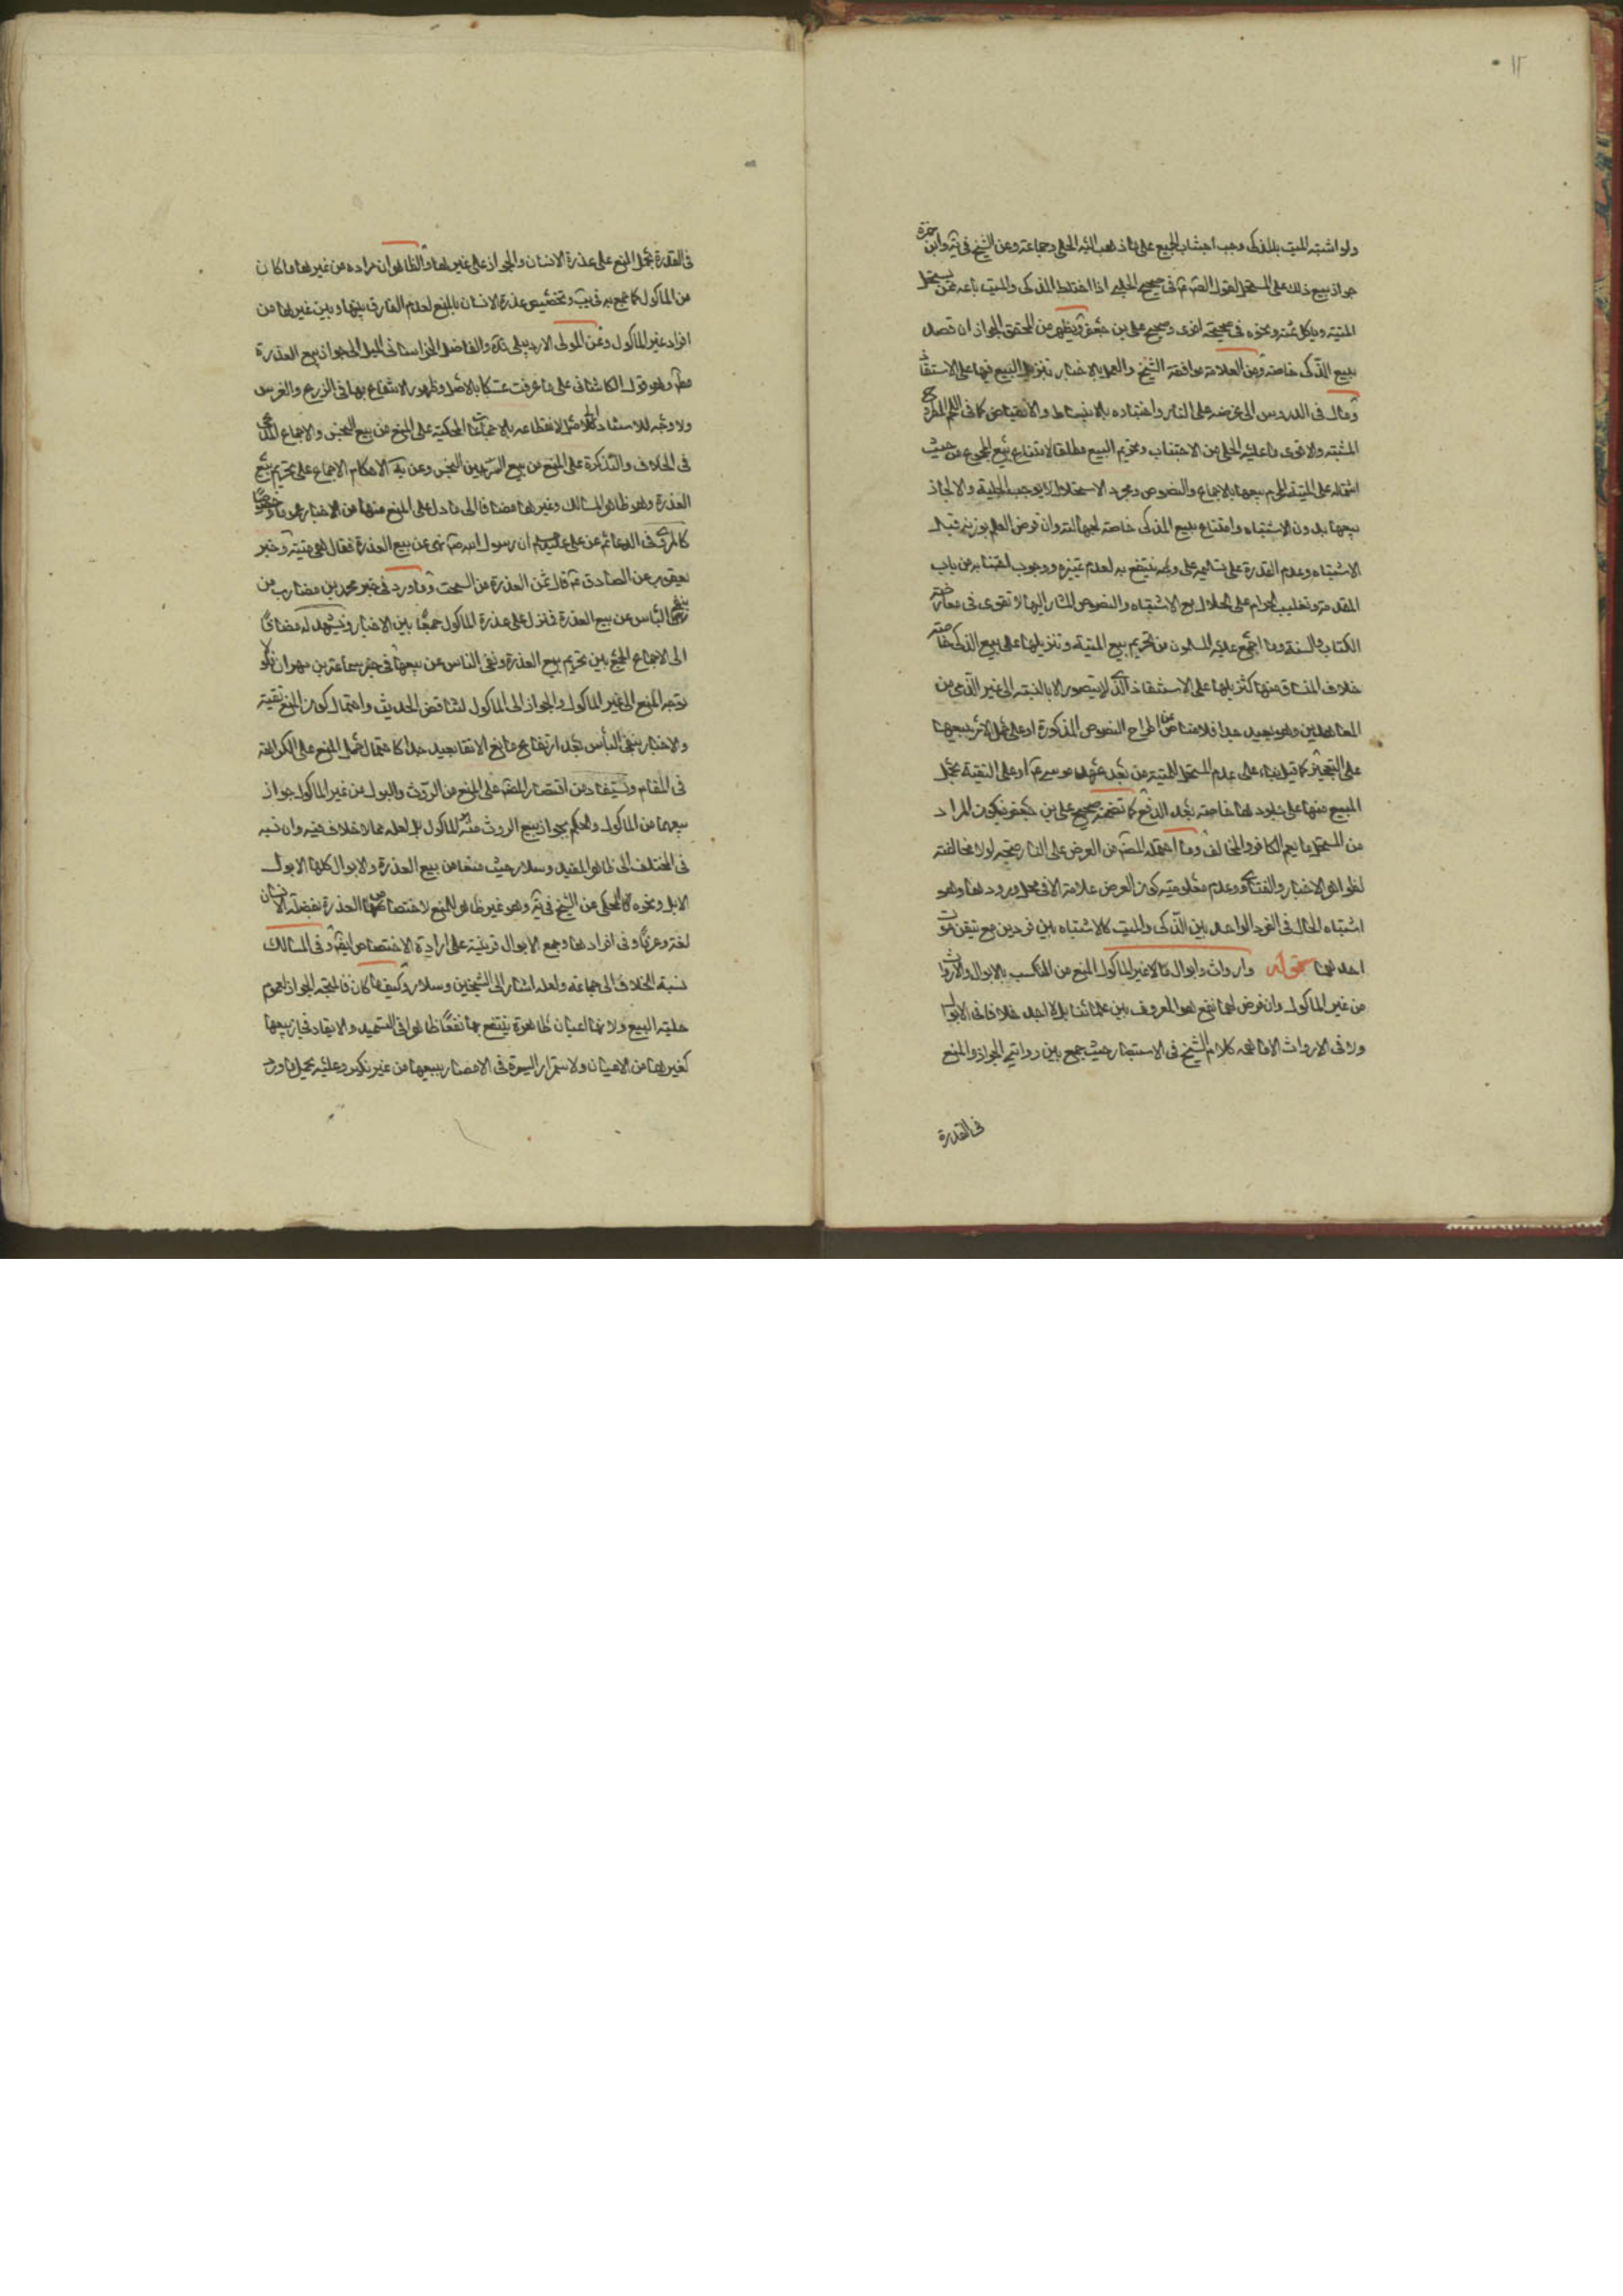 ١٢
ولو اشتبه الميت بالمذكى وجب اجتناب الجميع على ما ذهب اليه الحلي وجماعة وعن الشيخ في يه وابن حمزة
جواز بيع ذلك على المستحل لقول الصه ع في صحيح الحلبي اذا اختلط المذكى والميت باعه ممن يستحل
الميتة وياكل ثمنه ونحوه في صحيحته اخرى وصحيح علي بن جعفر ويظهر من المحقق الجواز ان قصد
بيع الذكى خاصة وعن العلامة موافقة الشيخ والعمل بالاخبار بتنزيل البيع فيها على الاستنقاذ
ومال في الدروس الى عرضه على النار واختباره بالانبساط والانقباض كما في اللحم المطروح
المشتبه والاقوى ما عليه الحلي من الاجتناب وتحريم البيع مطلقا لامتناع بيع المجموع من حيث
اشتماله على الميتة المحرم بيعها بالاجماع والنصوص ومجرد الاستحلال لا يوجب الحلية والا لجاز
بيعها بدون الاشتباه وامتناع بيع المذكى خاصة لجهالته وان فرض العلم بوزنه قبل
الاشتباه وعدم القدرة على تسليمه على وجه ينتفع به لعدم تميزه ووجوب اجتنابه من باب
المقدمة وتغليب الحرام على الحلال مع الاشتباه والنصوص المشار اليها لا تقوى في معارضة
الكتاب والسنة وما اجمع عليه المسلمون من تحريم بيع الميتة وتنزيلها على بيع الذكى خاصة
خلاف المنساق منها كتنزيلها على الاستنقاذ الذي لا يتصور الا بالنسبة الى غير الذمي من
المعاهدين وهو بعيد جدا فلا مناص عن اطراح النصوص المذكورة او على حمل الامر ببيعها
على التعجيز كما قيل بناء على عدم المستحل للميتة من بعد عهد موسى ع او على التقية بحمل
المبيع منها على جلودها خاصة بعد الدبغ كما تضمنه صحيح علي بن جعفر فيكون المراد
من المستحل ما يعم الكافر والمخالف وما احتمله المصه من العرض على النار متجه لولا مخالفته
لظواهر الاخبار والفتاوى وعدم معلومية كون العرض علامة الا في محل ورودها وهو
اشتباه الحال في الفرد الواحد بين الذكى والميت كالاشتباه بين فردين مع تيقن موت
احدهما قوله وارواث وابوال مالا غير الماكول المنع من التكسب بالابوال والارواث
من غير الماكول وان فرض لهما نفع هو المعروف بين علمائنا بل لا اجد خلافا في الابوال
ولا في الارواث الا ما كلام الشيخ في الاستبصار حيث جمع بين روايتي الجواز والمنع
في العذرة
في العذرة بحمل المنع على عذرة الانسان والجواز على غيرها والظاهر ان مراده من غيرها ما كان
من الماكول كما صرح به في يب وتخصيص عذرة الانسان بالمنع لعدم الفارق بينها وبين غيرها من
افراد غير الماكول وعن المولى الاردبيلي والفاضل الخراساني الميل الى جواز بيع العذرة
مطه وهو قول الكاشاني على ما عرفت تمسكا بالاصل وظهور الانتفاع بها في الزرع والغرس
ولا وجه للاستناد الى الاصل لانقطاعه بالاجماعات المحكية على المنع من بيع النجس والاجماع المحكي
في الخلاف والتذكرة على المنع من بيع السرجين النجس وعن يه الاحكام الاجماع على تحريم بيع
العذرة وهو ظاهر المسالك وغيرها مضافا الى ما دل على المنع منها من الاخبار عموما وخصوصا
كالمروي في الدعائم عن علي عليه السلام ان رسول الله ص نهى عن بيع العذرة فقال هي ميتة وخبر
يعقوب عن الصادق ع قال ثمن العذرة من السحت وما ورد في خبر محمد بن مضارب من
نفي الباس عن بيع العذرة فنزل على عذرة الماكول جمعا بين الاخبار ويشهد له مضافا
الى الاجماع الجمع بين تحريم بيع العذرة ونفي الباس عن بيعها في خبر سماعة بن مهران فلو
توجه المنع الى غير الماكول والجواز الى الماكول لتناقض الحديث واحتمال كون المنع تقية
والاخبار بنفي البأس بعد ارتفاع مانع الاتقاء بعيد جدا كاحتمال حمل المنع على الكراهة
في المقام ويستفاد من اقتصار المصه على المنع من الروث والبول من غير الماكول جواز
بيعهما من الماكول والحكم بجواز بيع الروث منه الماكول بل لعله مما لا خلاف فيه وان نسبه
في المختلف الى ظاهر المفيد وسلار حيث منعا من بيع العذرة والابوال كلها الا بول
الابل ونحوه المحكي عن الشيخ في يه وهو غير ظاهر المنع لاختصاص العذرة بفضلة الانسان
لغة وعرفا وفي افرادها وجمع الابوال قرينة على ارادة الاختصاص ايضه وفي المسالك
نسبة الخلاف الى جماعة ولعله اشار الى الشيخين وسلار وكيف كان فالمتجه الجواز لعموم
حلية البيع ولانها اعيان طاهرة ينتفع بها نفعا ظاهرا في التسميد والايقاد فجاز بيعها
كغيرهما من الاعيان ولاستمرار السيرة في الامصار ببيعها من غير نكير وعليه يحمل ما ورد